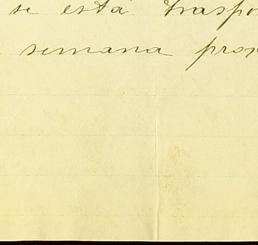 se está traspo
semana prox